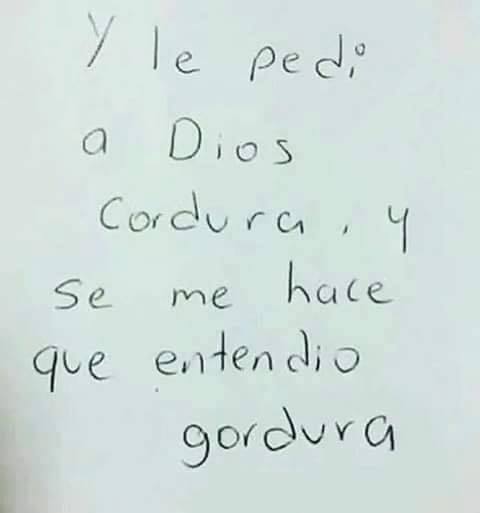 Y le pedi
a Dios
Cordura, y
se me hace
que entendio
gordura